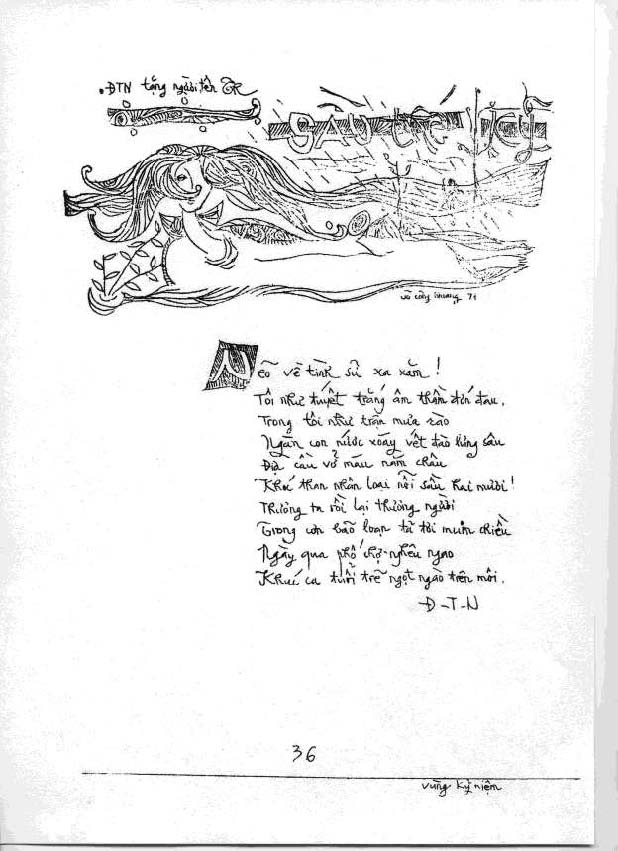 ĐTN tặng người tên TR
SẦU THẾ KỶ
võ công khương 71
Nẽo về tình sử xa xăm!
Tôi như tuyết trắng âm thầm đớn đau.
Trong tôi như trận mưa rào
Ngàn con nước xoáy vết đào hừng sâu
Địa cầu vở máu năm châu
Khúc than nhân loại nỗi sầu hai mươi!
Thương ta rồi lại thương người
Trong cơn bão loạn tả tơi muôn chiều
Ngày qua phố chợ nghêu ngao
Khúc ca tuổi trẽ ngọt ngào trên môi.
Đ-T-N
36
vùng kỷ niệm